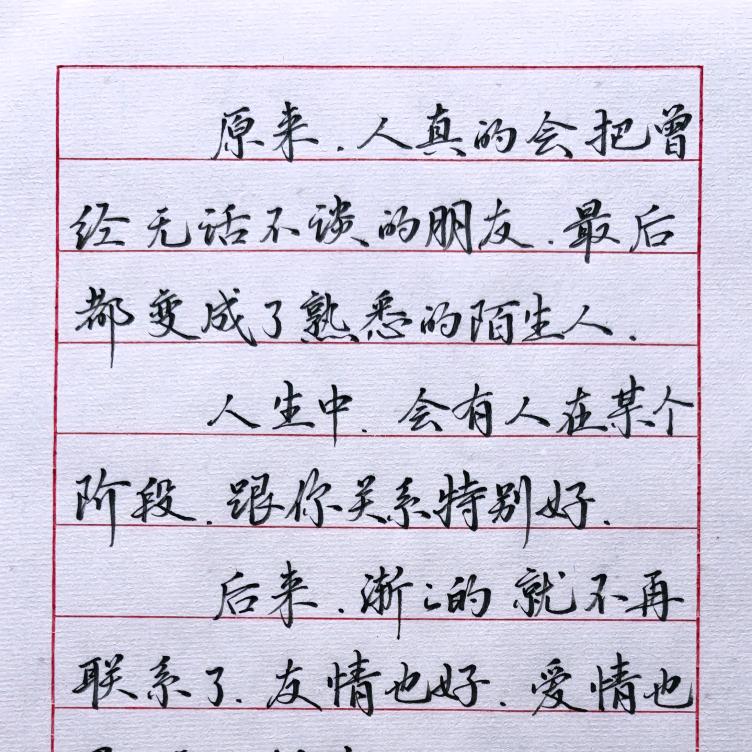 原来.人真的会把曾
经无话不谈的朋友.最后
都变成了熟悉的陌生人.
人生中.会有人在某个
阶段.跟你关系特别好.
后来.渐々的就不再
联系了.友情也好.爱情也